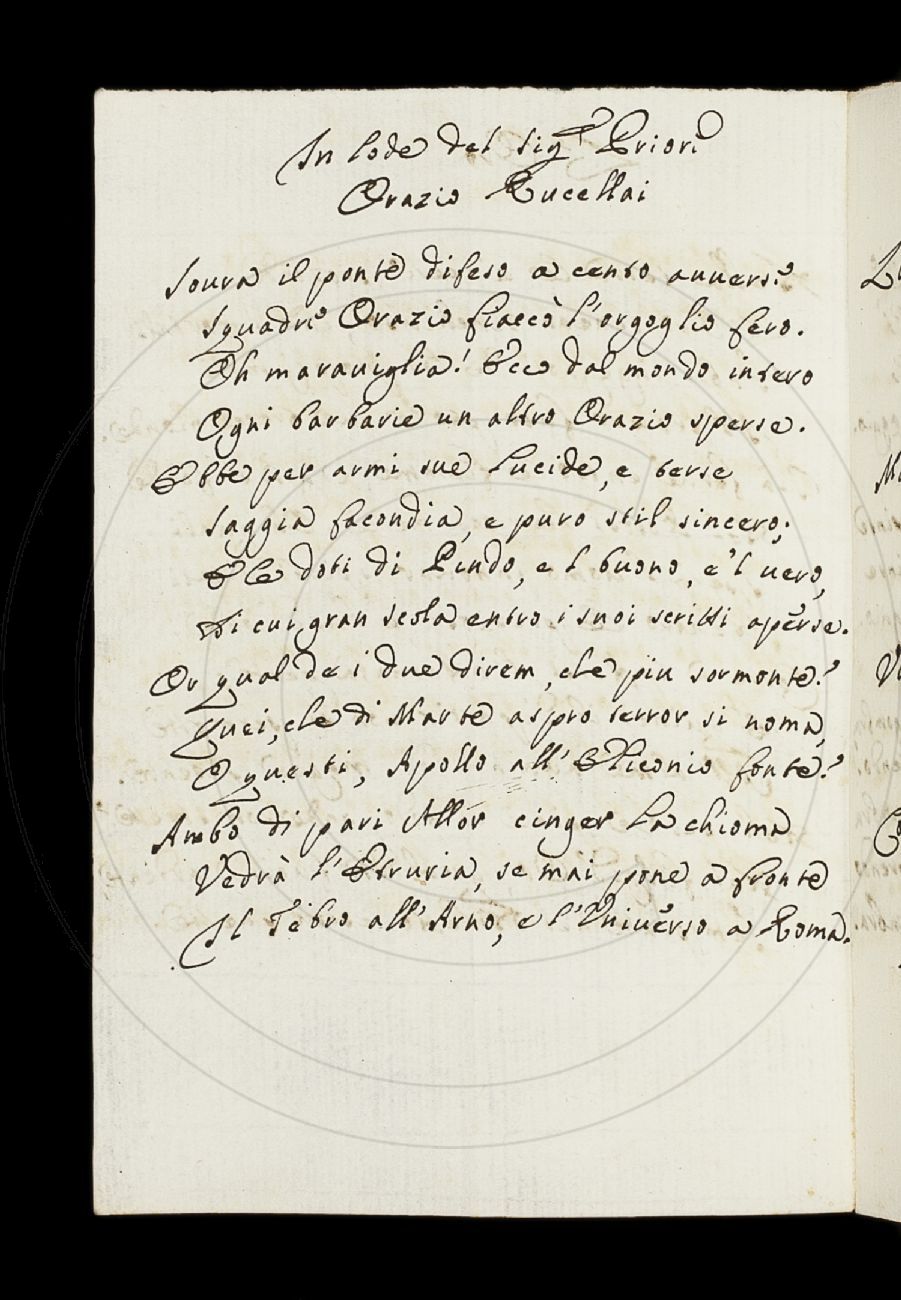 In lode del Sig.r Priore
Orazio Rucellai
Soura il ponte difeso a cento auuerse
Squadre Orazio fiaccò l'orgoglio fero.
Oh marauiglia! Ecco dal mondo intero
Ogni barbarie un altro Orazio sperse.
Ebbe per armi sue lucide, e terse
Saggia facondia, e puro stil sincero;
E le doti di Pindo, e l buono, e 'l uero,
Di cui gran scola entro i suoi scritti aperse.
Or qual de i due direm, che piu sormonte?
Quei, che di Marte aspro terror si noma,
O questi, Apollo all' Eliconio fonte?
Ambo di pari Allor cinger la chioma
Vedrà l'Etruria, se mai pone a fronte
Il Tebro all' Arno, e l'Vniuerso a Roma.